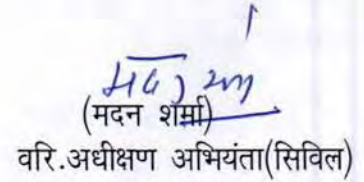 (मदन शर्मा)
वरि.अधीक्षण अभियंता(सिविल)